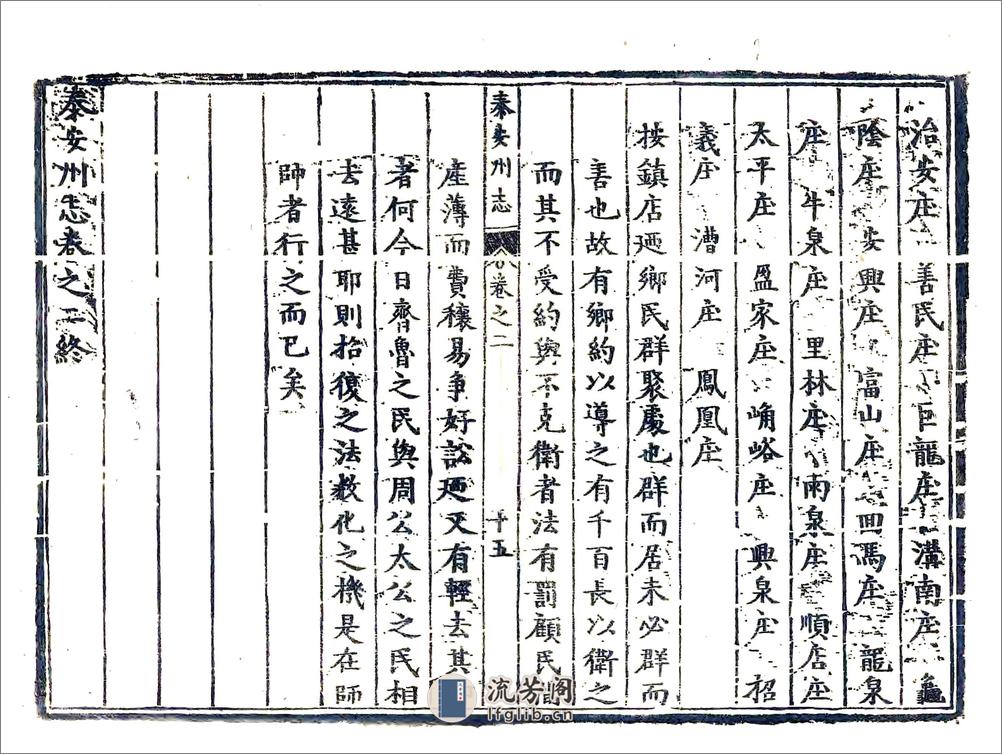 治安座 善民座 巨龍座 溝南座 龜
陰座 安興座 富山座 回馬座 龍泉
座 牛泉座 里林座 雨泉座 順店座
太平座 盈家座 崅峪座 興泉座 招
義座 漕河座 鳳凰座
按鎮店廼鄉民群聚處也群而居未必群而
善也故有鄉約以導之有千百長以衛之
而其不受約與不克衛者法有罰顧民
泰安州志 卷之二 十五
產薄而費穰易爭好訟廼又有輕去其
者何今日齊魯之民與周公太公之民相
去遠甚耶則抬復之法教化之機是在師
帥者行之而已矣
泰安州志卷之二終
流芳阁
lfglib.cn